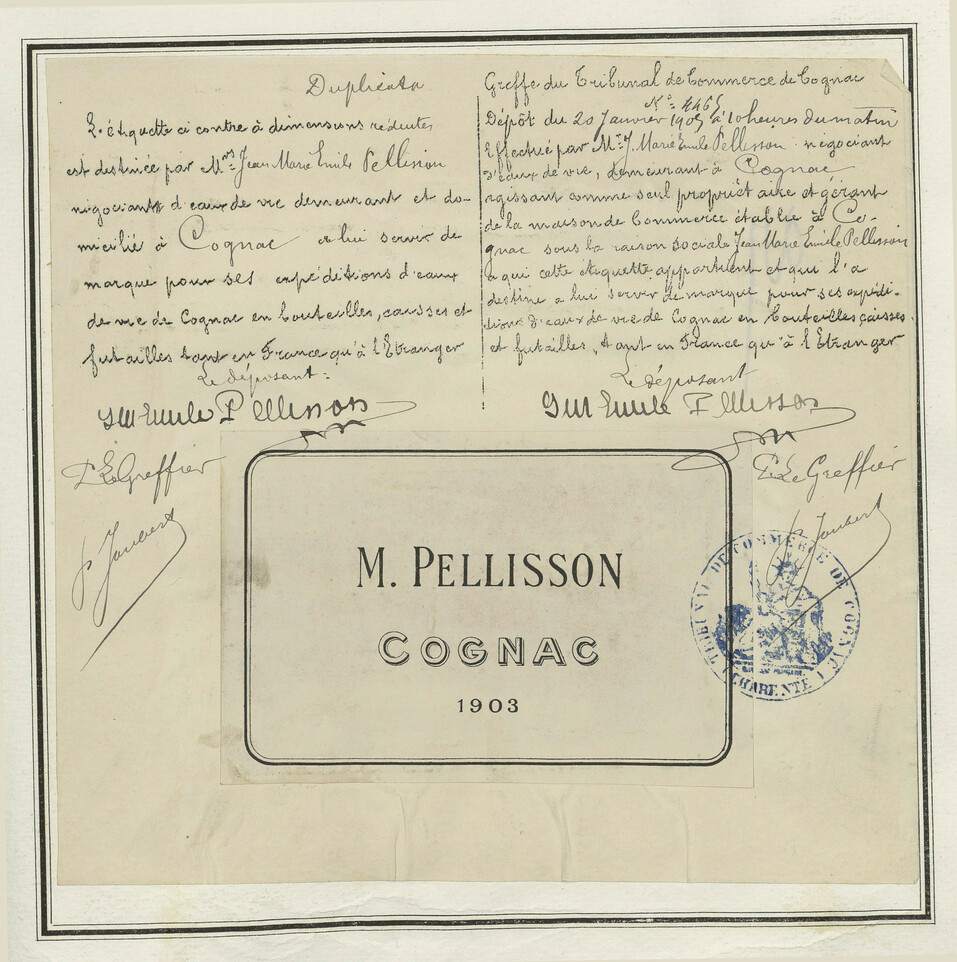 Duplicata
L'étiquette ci contre à dimensions réduites
est destinée par Mrs Jean Marie Emile Pellisson
négociants d'eaux de vie demeurant et do-
micilié à Cognac à lui servir de
marque pour ses expéditions d'eaux
de vie de Cognac en bouteilles, caisses et
futailles tant en France qu'à l'Etranger
Le déposant:
JM Emile Pellisson
Le Greffier
Joubert
Greffe du Tribunal de Commerce de Cognac
No 4465
Dépôt du 20 Janvier 1905 à 10 heures du matin
Effectué par Mr J. Marie Emile Pellisson négociant
d'eaux de vie, demeurant à Cognac
agissant comme seul propriétaire et gérant
de la maison de Commerce établie à Co-
gnac sous la raison sociale Jean Marie Emile Pellisson
à qui cette étiquette appartient et qui l'a
destine a lui servir de marque pour ses expédi-
tions d'eaux de vie de Cognac en bouteilles caisses
et futailles, tant en France qu'à l'Etranger
Le déposant
JM Emile Pellisson
Le Greffier
Joubert
M. PELLISSON
COGNAC
1903
TRIBUNAL DE COMMERCE DE COGNAC
CHARENTE